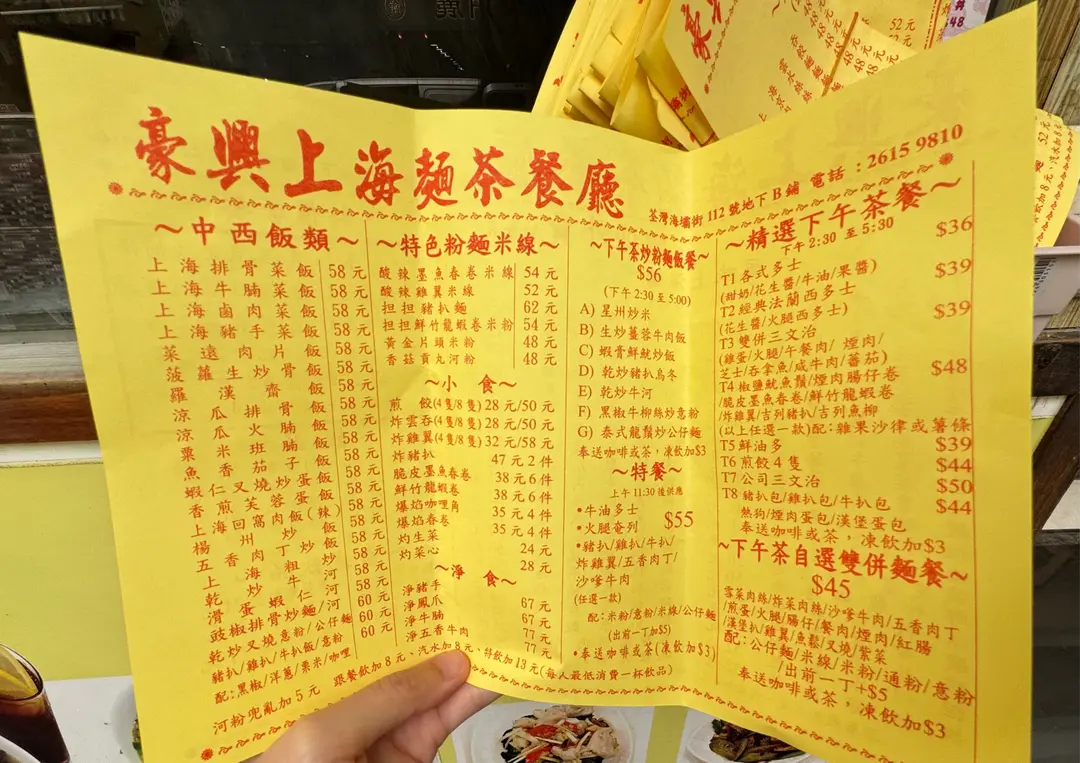 豪興上海麵茶餐廳
荃灣海壩街 112 號地下 B 鋪 電話：2615 9810
～中西飯類～
上海排骨菜飯 58元
上海牛腩菜飯 58元
上海鹵肉菜飯 58元
上海豬手菜飯 58元
菜遠肉片飯 58元
菠蘿生炒骨飯 58元
羅漢齋飯 58元
涼瓜排骨飯 58元
涼瓜火腩飯 58元
粟米班腩飯 58元
魚香茄子飯 58元
蝦仁叉燒炒蛋飯 58元
香煎芙蓉蛋飯 58元
上海回窩肉飯(辣) 58元
楊州炒飯 58元
五香肉丁炒飯 58元
上海粗炒 58元
乾炒牛河 58元
滑蛋蝦仁河 60元
豉椒排骨炒麵/河 60元
乾炒叉燒意粉/公仔麵 60元
豬扒/雞扒/牛扒飯/意粉
配:黑椒/洋蔥/粟米/咖哩
河粉兜亂加 5 元
跟餐飲加 8 元、汽水加 8 元、特飲加 13 元(每人最低消費一杯飲品)
～特色粉麵米線～
酸辣墨魚春卷米線 54元
酸辣雞翼米線 52元
担担豬扒麵 62元
担担鮮竹龍蝦卷米粉 54元
黃金片頭米粉 48元
香菇貢丸河粉 48元
～小食～
煎餃(4隻/8隻) 28元/50元
炸雲吞(4隻/8隻) 28元/50元
炸雞翼(4隻/8隻) 32元/58元
炸豬扒 47元2件
脆皮墨魚春卷 38元6件
鮮竹龍蝦卷 38元6件
爆焰咖哩角 35元4件
爆焰春卷 35元4件
灼生菜 24元
灼菜心 28元
～淨食～
淨豬手 67元
淨鳳爪 67元
淨牛腩 77元
淨五香牛肉 77元
～下午茶炒粉麵飯餐～
$56
(下午 2:30 至 5:00)
A) 星州炒米
B) 生炒薑蓉牛肉飯
C) 蝦膏鮮魷炒飯
D) 乾炒豬扒烏冬
E) 乾炒牛河
F) 黑椒牛柳絲炒意粉
G) 泰式龍鬚炒公仔麵
奉送咖啡或茶，凍飲加$3
～特餐～
上午 11:30 後供應
•牛油多士
•火腿奄列 $55
•豬扒/雞扒/牛扒/
炸雞翼/五香肉丁/
沙嗲牛肉
(任選一款)
配：米粉/意粉/米線/公仔麵
(出前一丁加$5)
•奉送咖啡或茶(凍飲加$3)
～精選下午茶餐～
下午 2:30 至 5:30
T1 各式多士 $36
(甜奶/花生醬/牛油/果醬)
T2 經典法蘭西多士 $39
(花生醬/火腿西多士)
T3 雙併三文治 $39
(雞蛋/火腿/午餐肉/煙肉/
芝士/吞拿魚/咸牛肉/蕃茄)
T4 椒鹽魷魚鬚/煙肉腸仔卷 $48
/脆皮墨魚春卷/鮮竹龍蝦卷
/炸雞翼/吉列豬扒/吉列魚柳
(以上任選一款)配：雜果沙律或薯條
T5 鮮油多 $39
T6 煎餃 4 隻 $44
T7 公司三文治 $50
T8 豬扒包/雞扒包/牛扒包 $44
熱狗/煙肉蛋包/漢堡蛋包
奉送咖啡或茶，凍飲加$3
～下午茶自選雙併麵餐～
$45
雪菜肉絲/炸菜肉絲/沙嗲牛肉/五香肉丁
/煎蛋/火腿/腸仔/餐肉/煙肉/紅腸
/漢堡扒/雞翼/魚鬆/叉燒/紫菜
配：公仔麵/米線/米粉/通粉/意粉
/出前一丁+$5
奉送咖啡或茶，凍飲加$3